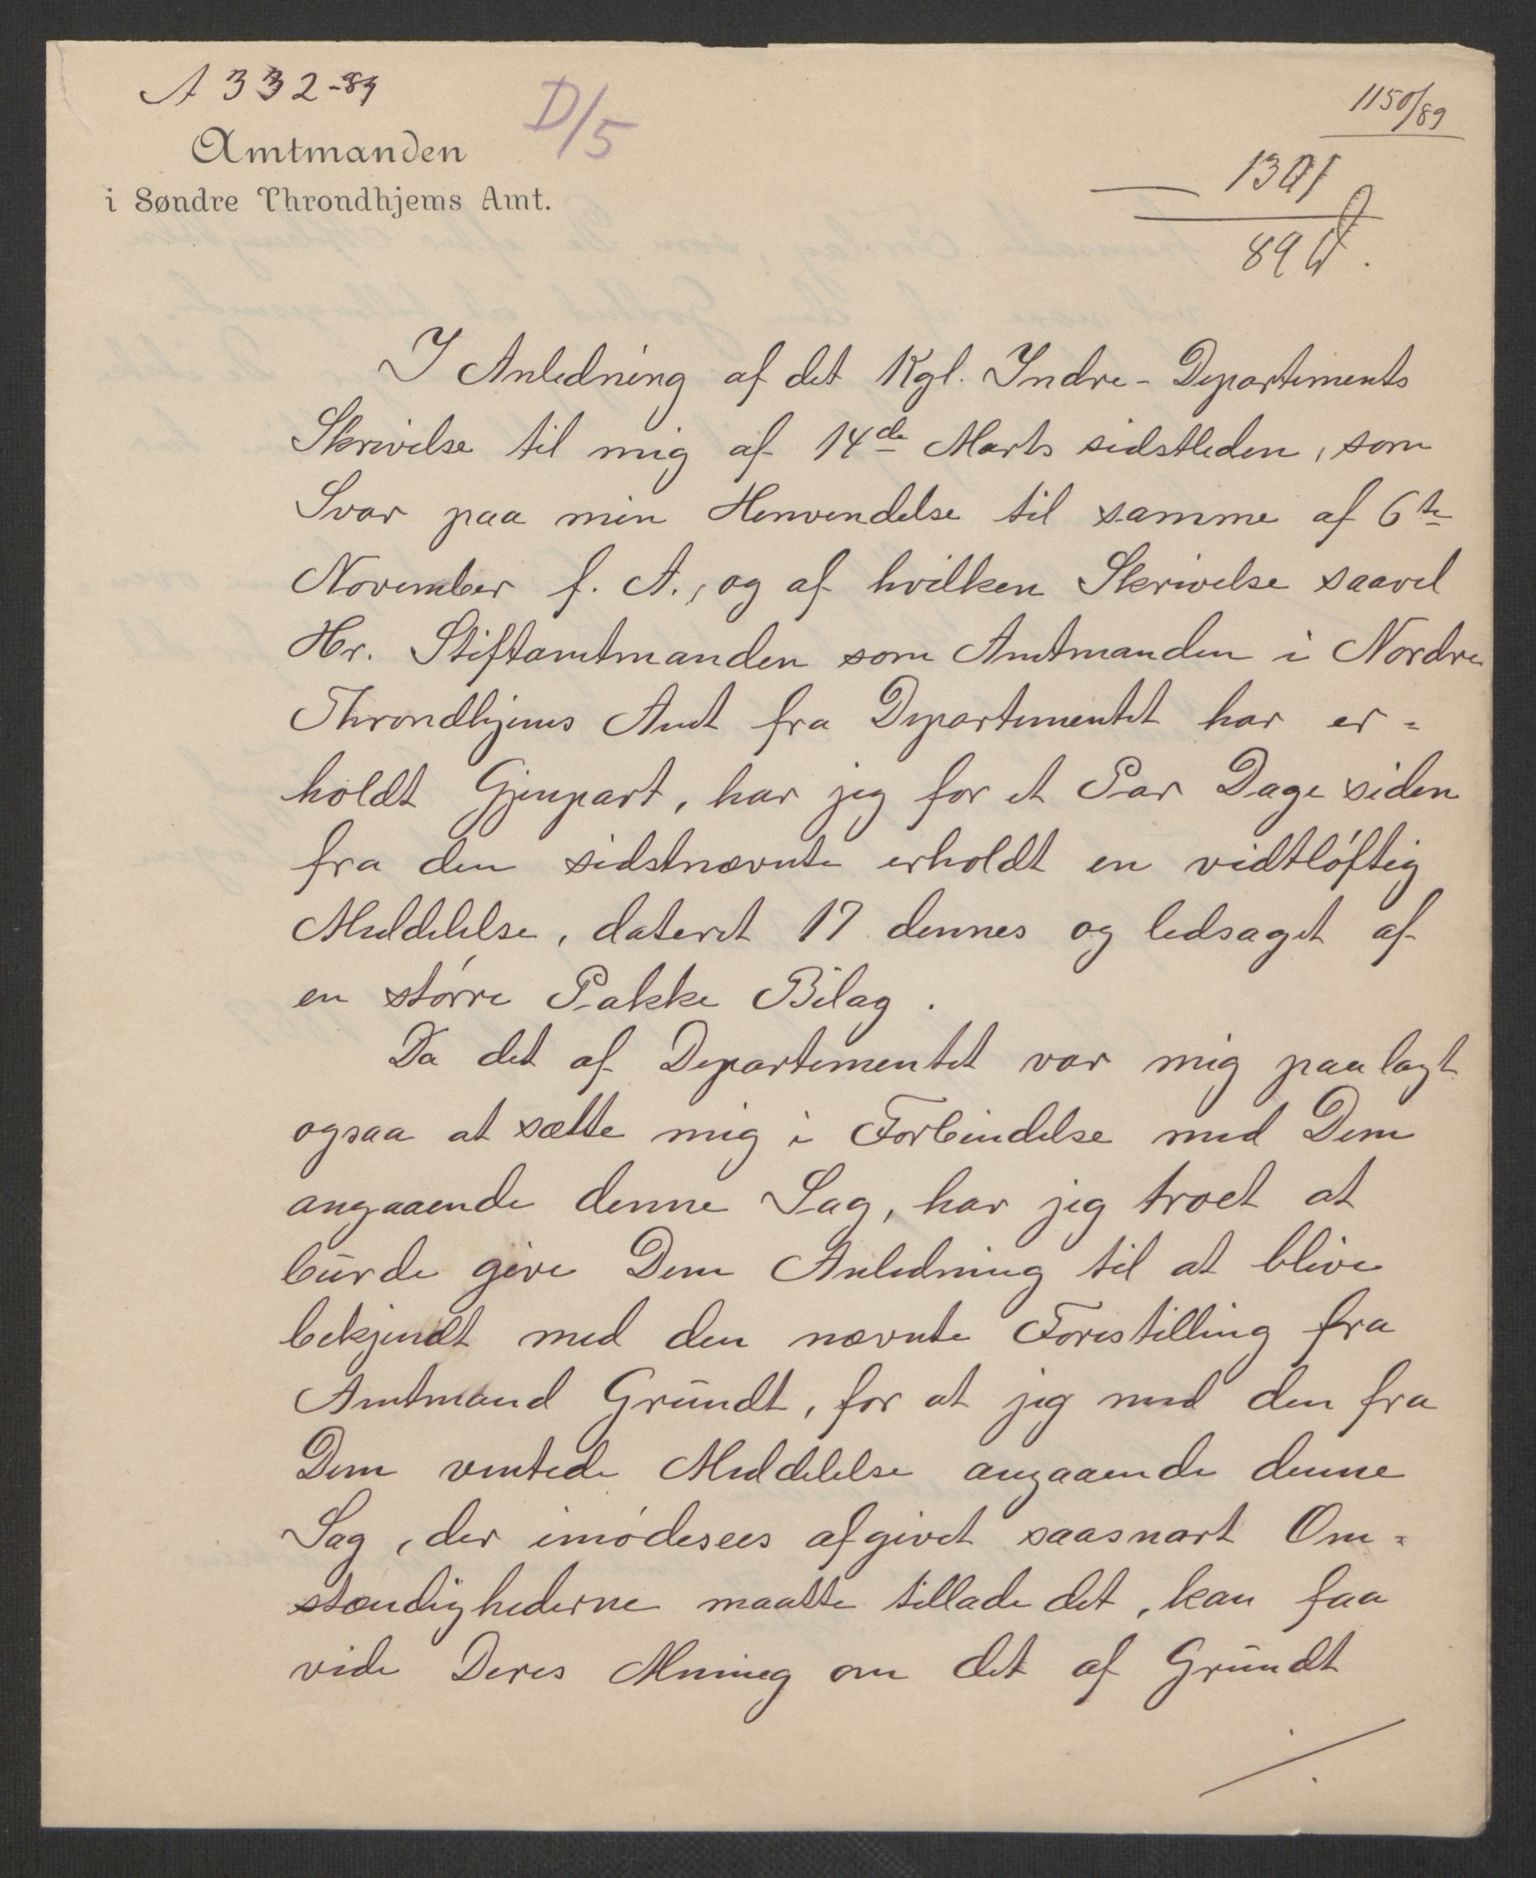 A 332-89
D/5
1150/89
Amtmanden
i Søndre Throndhjems Amt.
1301
89
I Anledning af det Kgl. Indre-Departements
Skrivelse til mig af 14de Marts sidstleden, som
Svar paa min Henvendelse til samme af 6te
November f. A., og af hvilken Skrivelse saavel
Hr. Stiftamtmanden som Amtmanden i Nordre
Throndhjems Amt fra Departementet har er=
holdt Gjenpart, har jeg for et Par Dage siden
fra den sidstnævnte erholdt en vidtløftig
Meddelelse, dateret 17 dennes og ledsaget af
en større Pakke Bilag.
Da det af Departementet var mig paalagt
ogsaa at sætte mig i Forbindelse med Dem
angaaende denne Sag, har jeg troet at
burde give Dem Anledning til at blive
bekjendt med den nævnte Forestilling fra
Amtmand Grundt, for at jeg med den fra
Dem ventede Meddelelse angaaende denne
Sag, der imødesees afgivet saasnart Om=
stændighederne maatte tillade det, kan faa
vide Deres Mening om det af Grundt